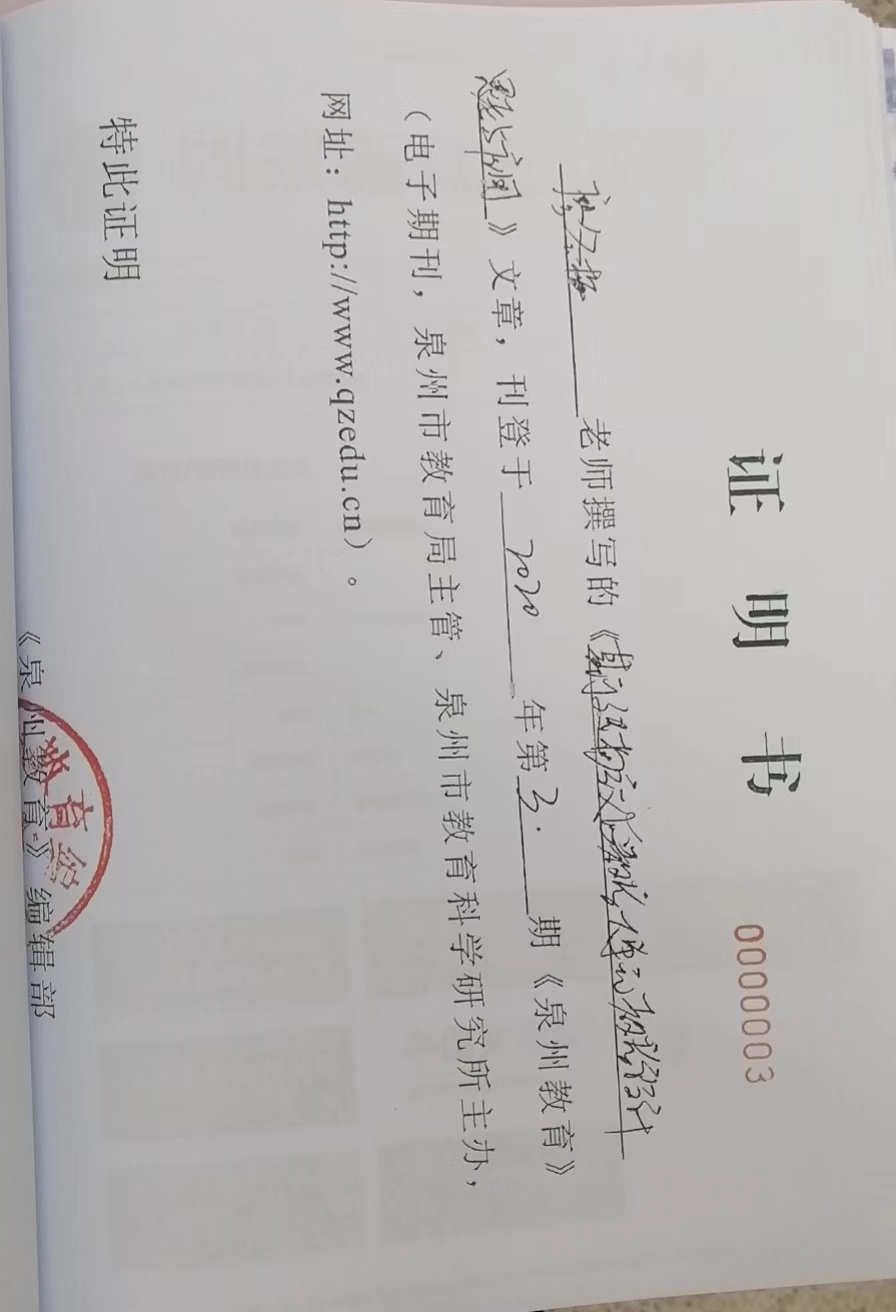 证明书
0000003
老师撰写的《
》文章，刊登于2020年第3.期《泉州教育》
（电子期刊，泉州市教育局主管、泉州市教育科学研究所主办，
网址：http://www.qzedu.cn）。
特此证明
《泉州教育》编辑部